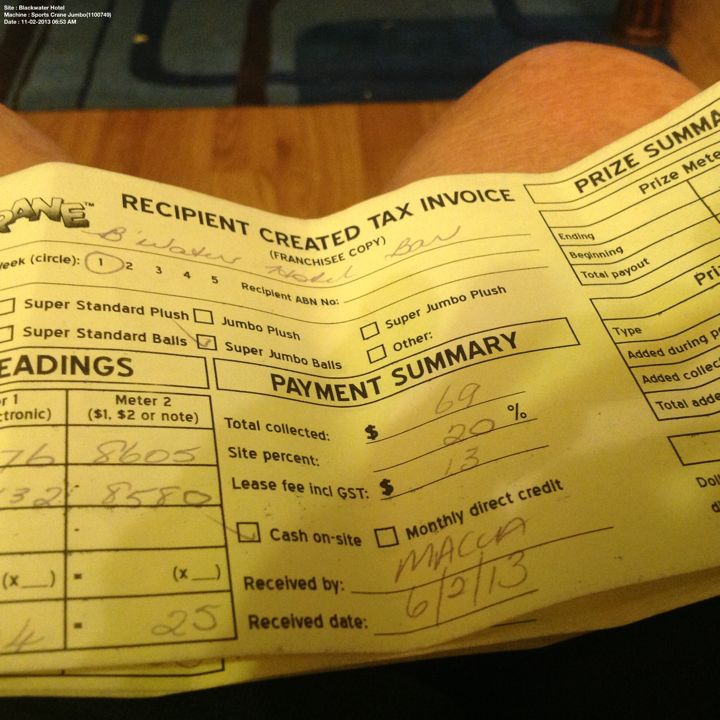 Site : Blackwater Hotel
Machine : Sports Crane Jumbo(1100749)
Date : 11-02-2013 06:53 AM
RANE™
RECIPIENT CREATED TAX INVOICE
(FRANCHISEE COPY)
B'Water Hotel Bar
eek (circle): 1 2 3 4 5
Recipient ABN No:
Super Standard Plush
Jumbo Plush
Super Jumbo Plush
Super Standard Balls
Super Jumbo Balls
Other:
EADINGS
r 1
tronic)
Meter 2
($1, $2 or note)
76
8605
32
8580
(x__) = (x__)
4 = 25
PAYMENT SUMMARY
Total collected: $ 69
Site percent: 20 %
Lease fee incl GST: $ 13
Cash on-site
Monthly direct credit
Received by: MACCA
Received date: 6/2/13
PRIZE SUMMA
Prize Mete
Ending
Beginning
Total payout
Pri
Type
Added during p
Added collec
Total adde
Dol
d